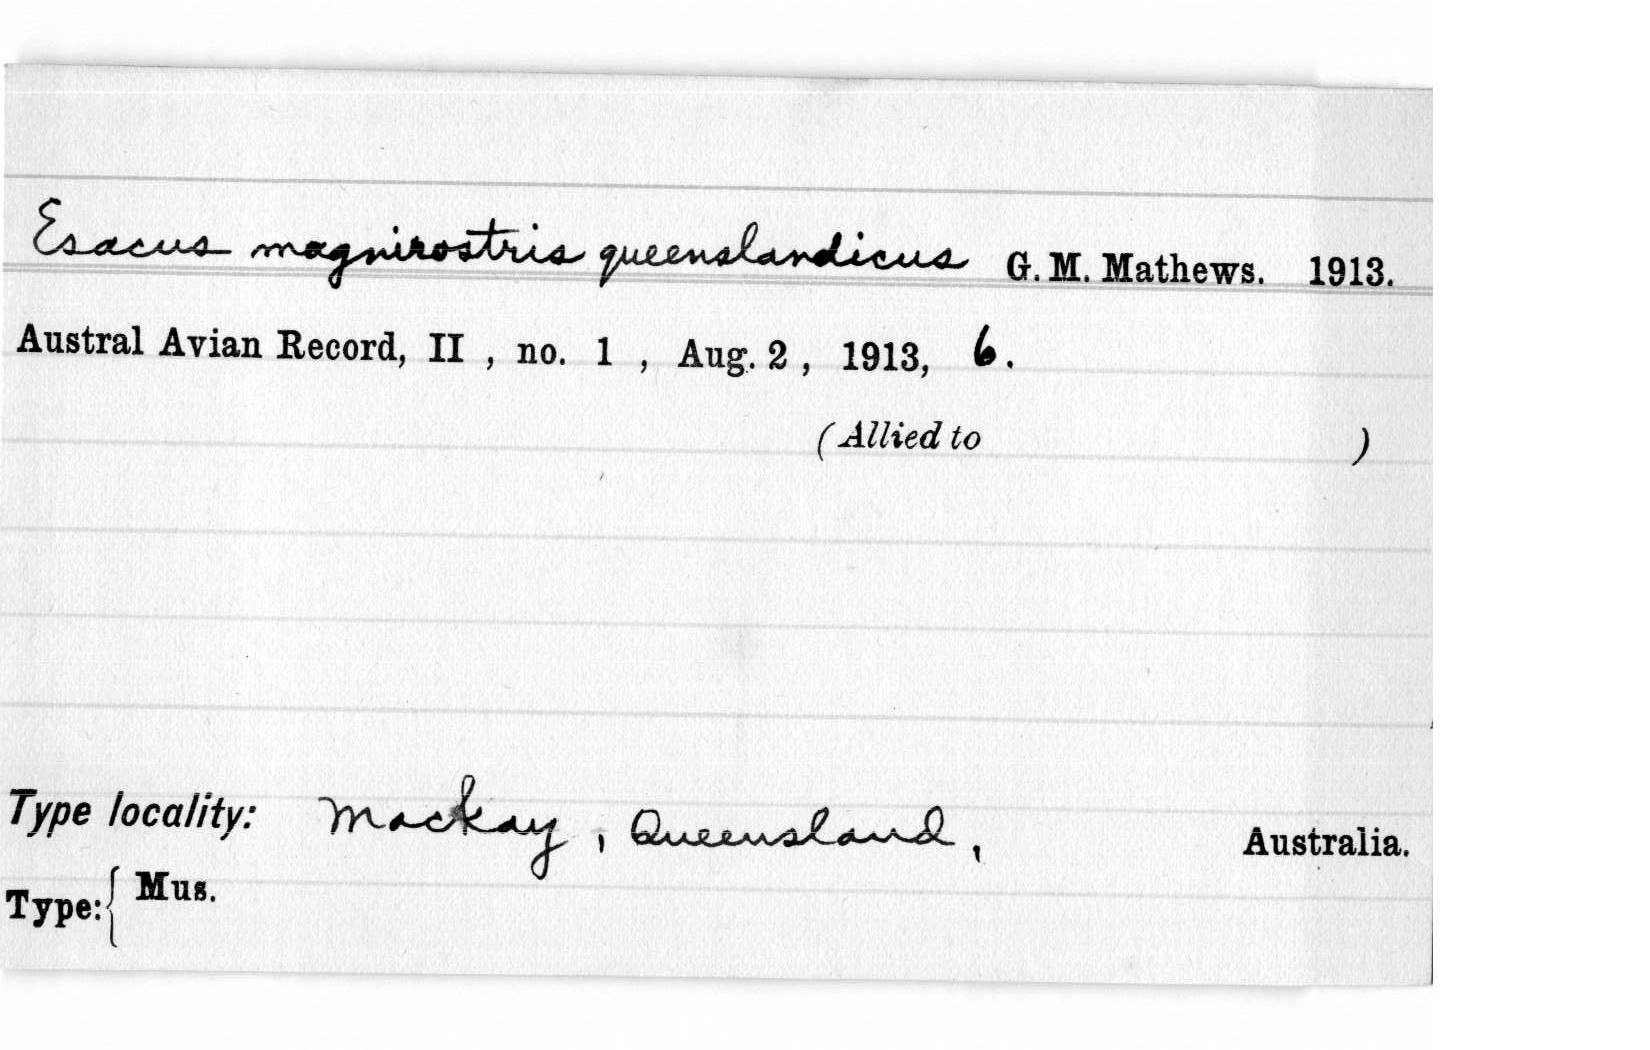 Esacus magnirostris queenslandicus G. M. Mathews. 1913.
Austral Avian Record, II , no. 1 , Aug. 2 , 1913, 6.
(Allied to )
Type locality: Mackay, Queensland, Australia.
Type: { Mus.